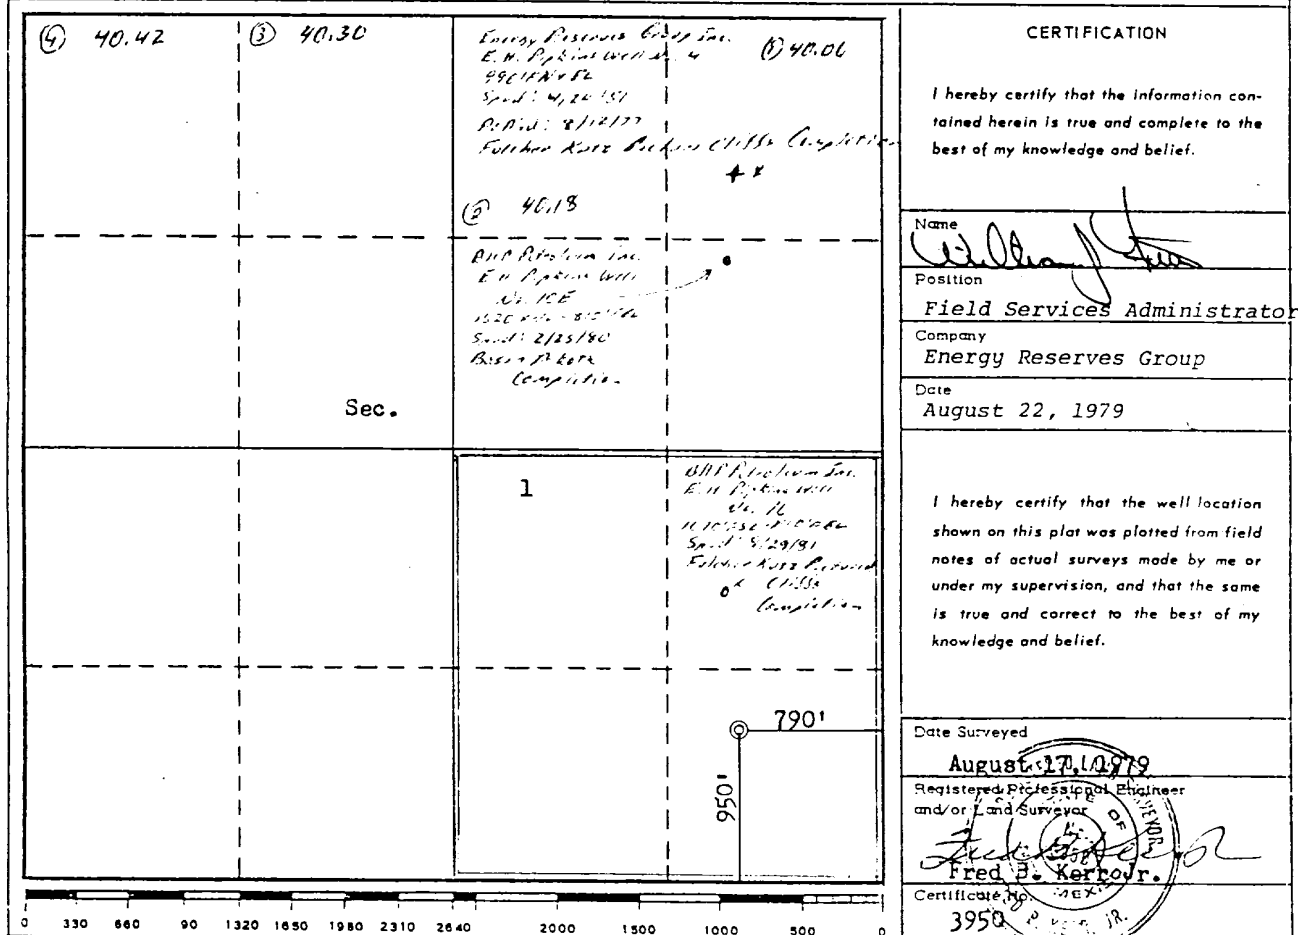 ④ 40.42
③ 40.30
Energy Reserves Group Inc.
E. H. Pipkins Well No. 4
① 40.06
990'
Spud:
8/12/77
Fulcher Kutz Cliffs Completion
② 40.18
BHP Petroleum Inc.
E H Pipkins Well
No. 10E
Spud: 2/25/80
Basin Dakota
Completion
Sec.
1
BHP Petroleum Inc.
E. H Pipkins Well
No. 
Spud:
Fulcher Kutz Pictured
Cliffs
Completion
790'
950'
0 330 660 90 1320 1650 1980 2310 2640 2000 1500 1000 500 0
CERTIFICATION
I hereby certify that the information con-
tained herein is true and complete to the
best of my knowledge and belief.
Name
Position
Field Services Administrator
Company
Energy Reserves Group
Date
August 22, 1979
I hereby certify that the well location
shown on this plat was plotted from field
notes of actual surveys made by me or
under my supervision, and that the same
is true and correct to the best of my
knowledge and belief.
Date Surveyed
August 17, 1979
Registered Professional Engineer
and/or Land Surveyor
Fred B. Kerr Jr.
Certificate No.
3950